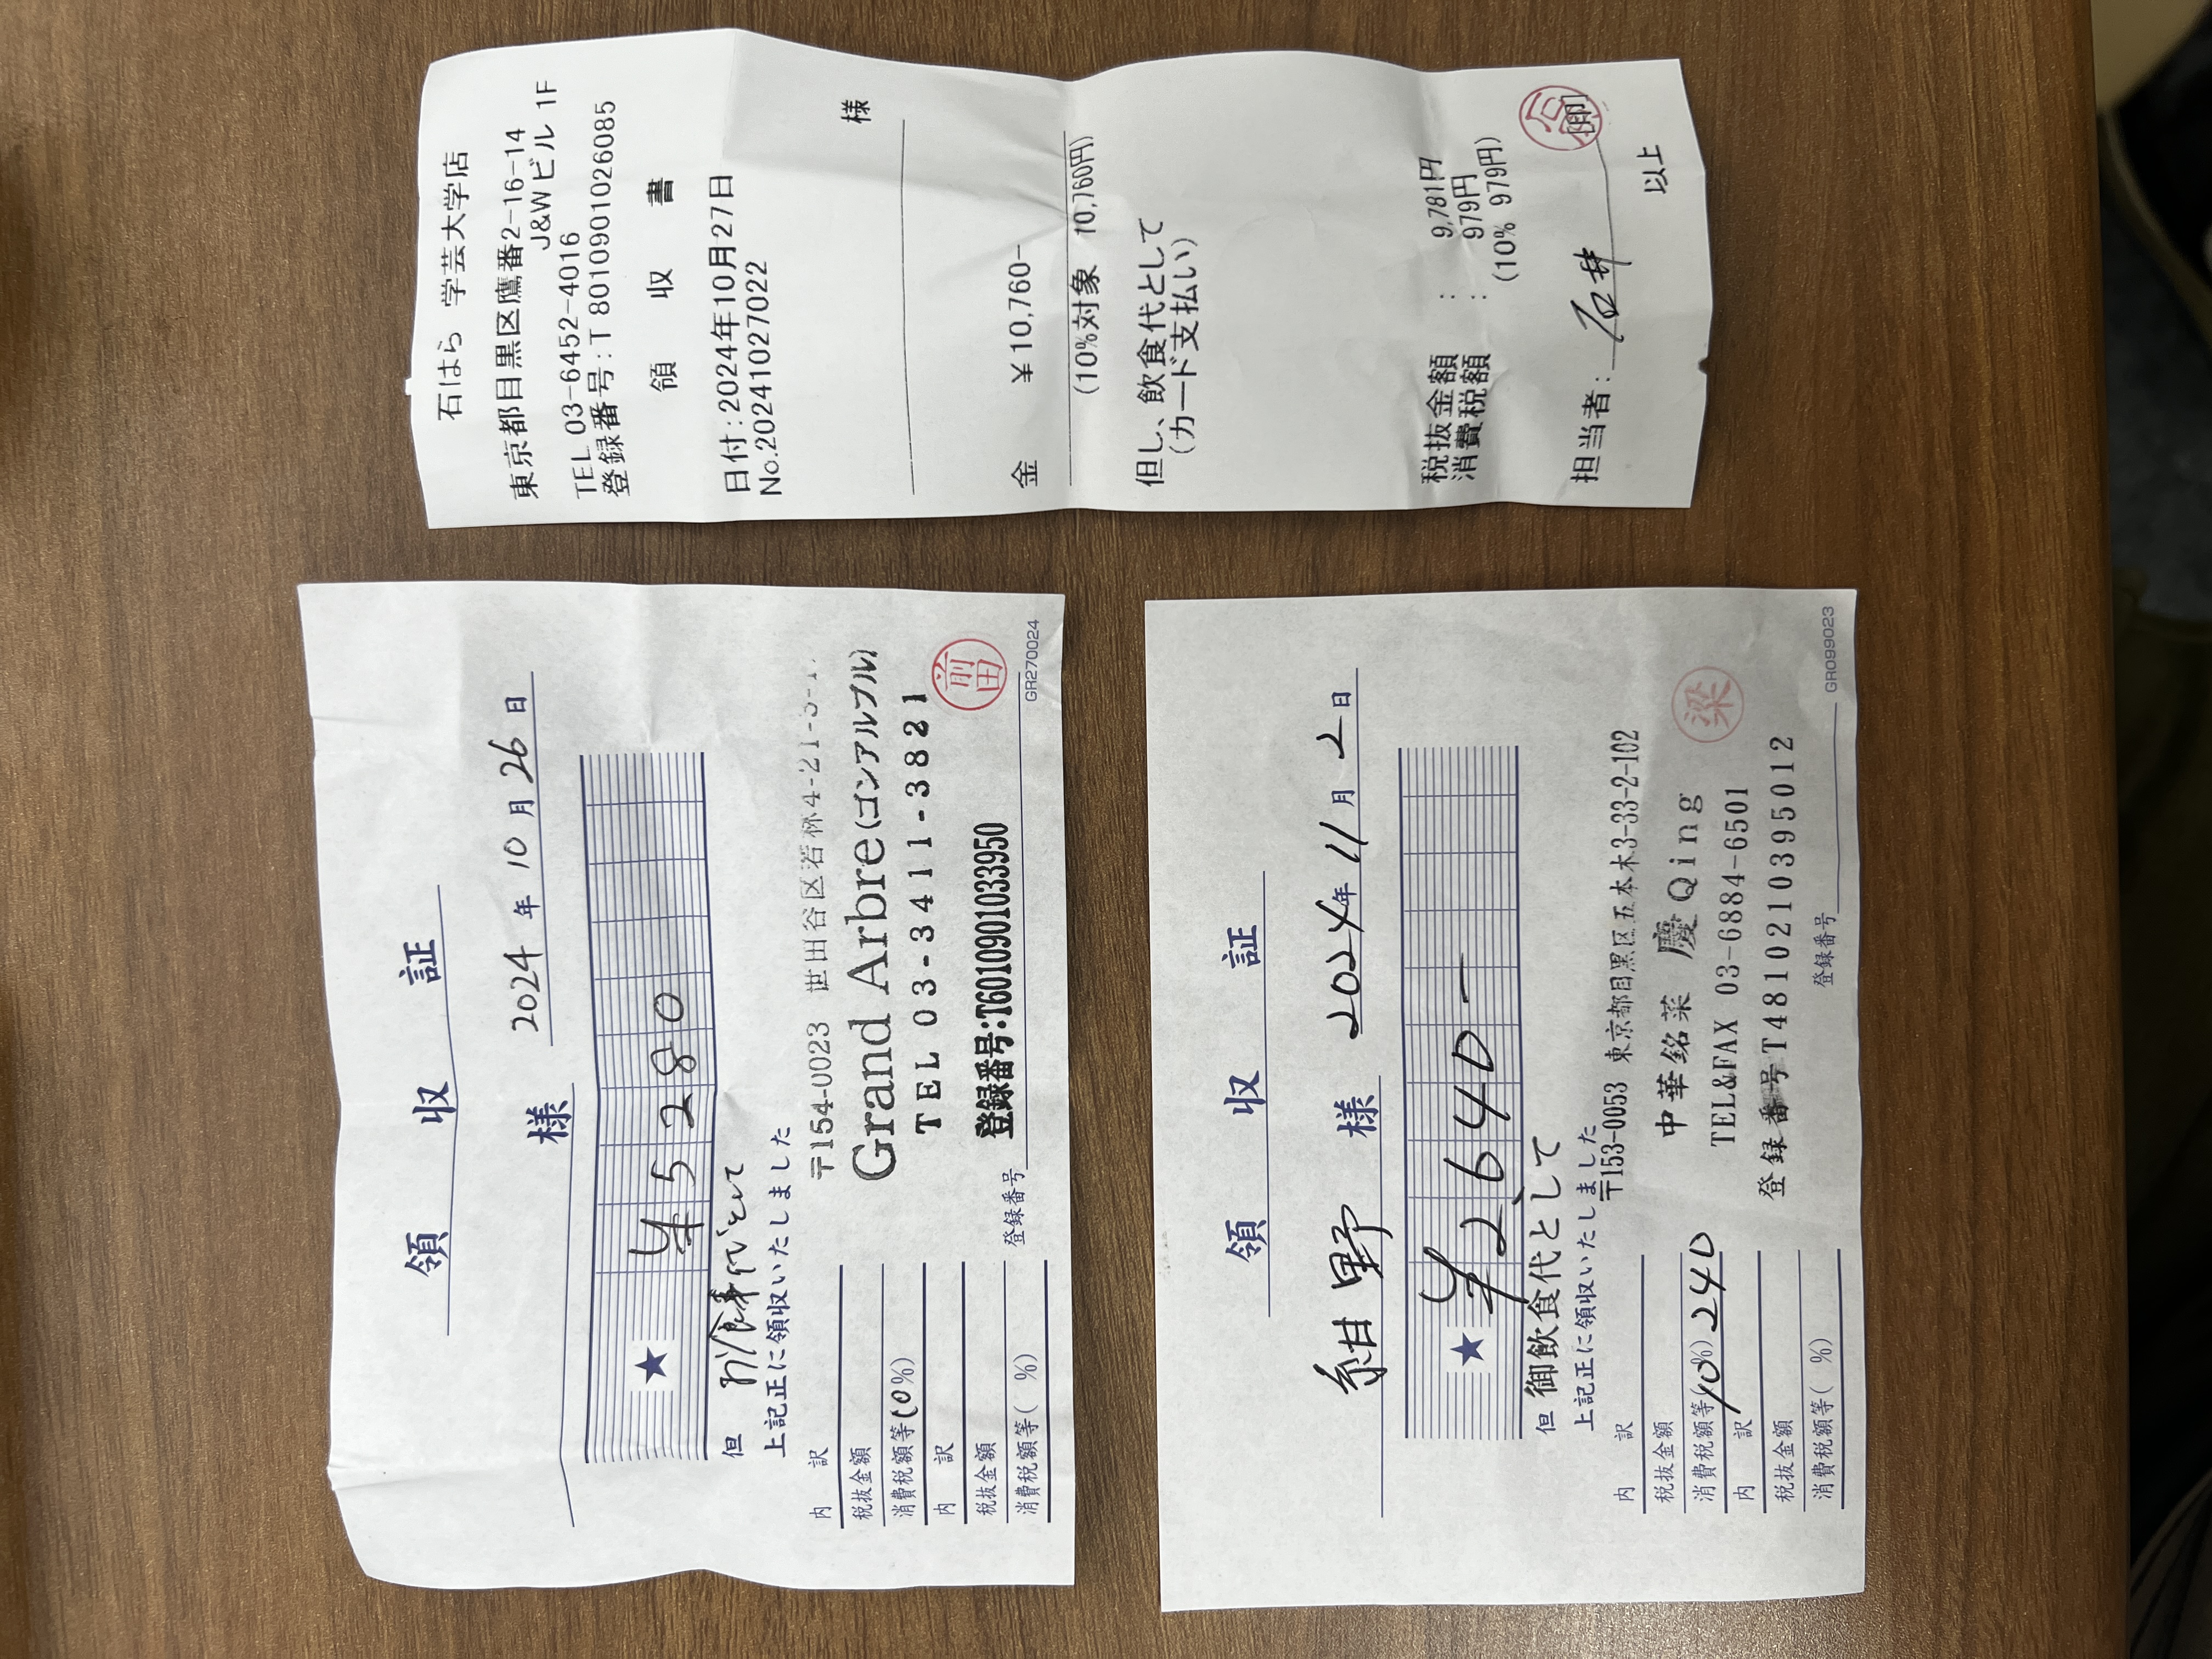 領 収 証
様 2024年10月26日
★ ¥5280
但 お食事代として
上記正に領収いたしました
内 訳
税抜金額
消費税額等(10%)
内 訳
税抜金額
消費税額等( %)
〒154-0023 世田谷区若林4-21-3-1
Grand Arbre(ゴンアルブル)
TEL 03-3411-3821
前田
登録番号:T6010901033950
登録番号
GR270024
領 収 証
紺野 様 2024年11月2日
★ ¥2,640-
但 御飲食代として
上記正に領収いたしました
内 訳
税抜金額
消費税額等(10%) 240
内 訳
税抜金額
消費税額等( %)
〒153-0053 東京都目黒区五本木3-33-2-102
中華銘菜 慶Qing
TEL&FAX 03-6884-6501
梁
登録番号T4810210395012
登録番号
GR099023
石はら 学芸大学店
東京都目黒区鷹番2-16-14
J&Wビル 1F
TEL 03-6452-4016
登録番号:T 8010901026085
領 収 書
日付:2024年10月27日
No.20241027022
様
金 ¥10,760-
(10%対象 10,760円)
但し、飲食代として
(カード支払い)
税抜金額 : 9,781円
消費税額 : 979円
(10% 979円)
[印]
担当者: 石井
以上